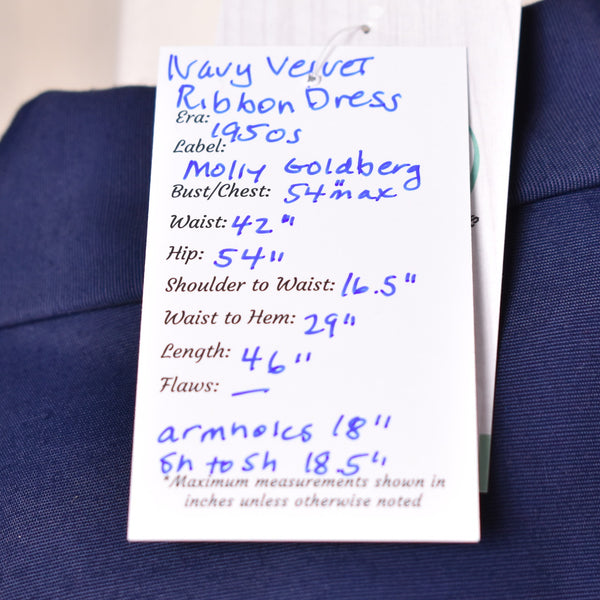 Navy Velvet
Ribbon Dress
Era: 1950s
Label:
Molly Goldberg
Bust/Chest: 54" max
Waist: 42"
Hip: 54"
Shoulder to Waist: 16.5"
Waist to Hem: 29"
Length: 46"
Flaws: —
armholes 18"
Sh to Sh 18.5"
*Maximum measurements shown in
inches unless otherwise noted